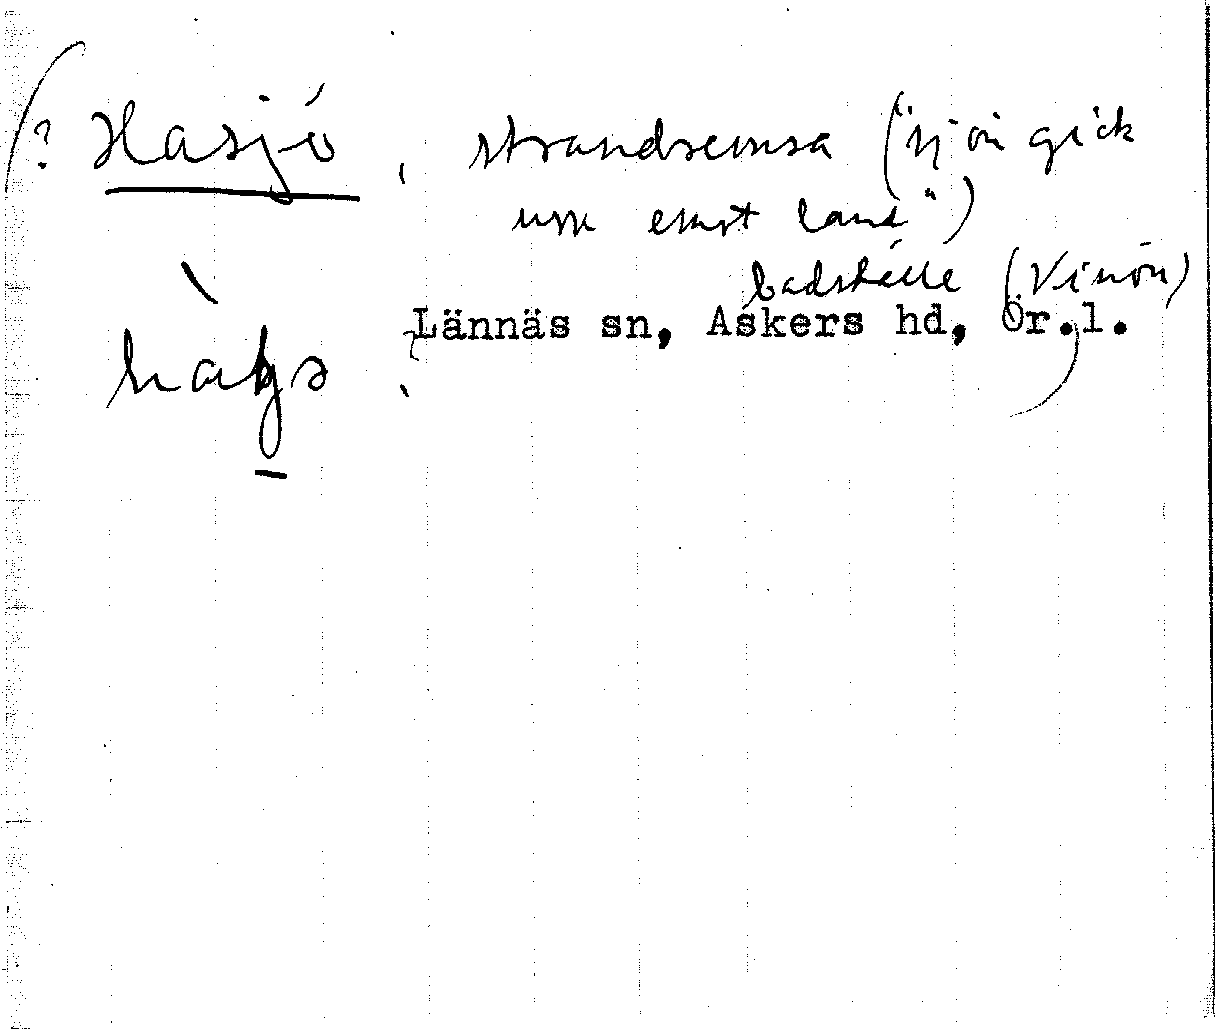 (? Hasjö, strandremsa ("sjön gick
um emot land")
badställe (Vinön)
Lännäs sn, Askers hd, Ör.l.)